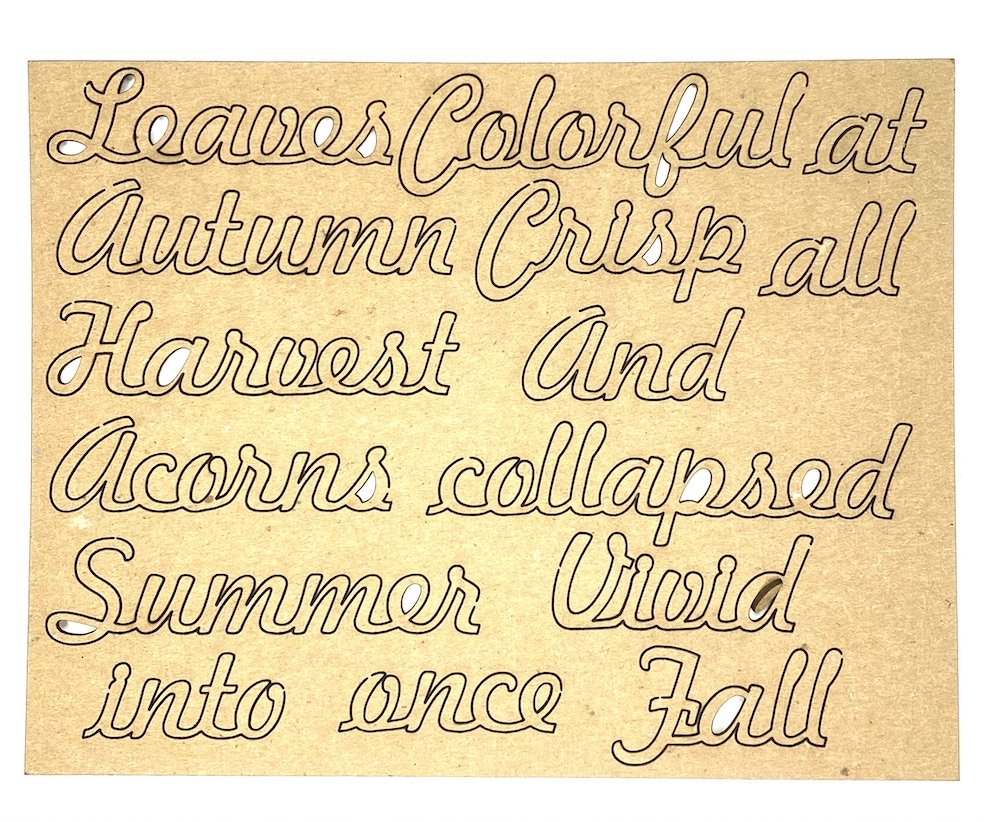 Leaves Colorful at
Autumn Crisp all
Harvest And
Acorns collapsed
Summer Vivid
into once Fall